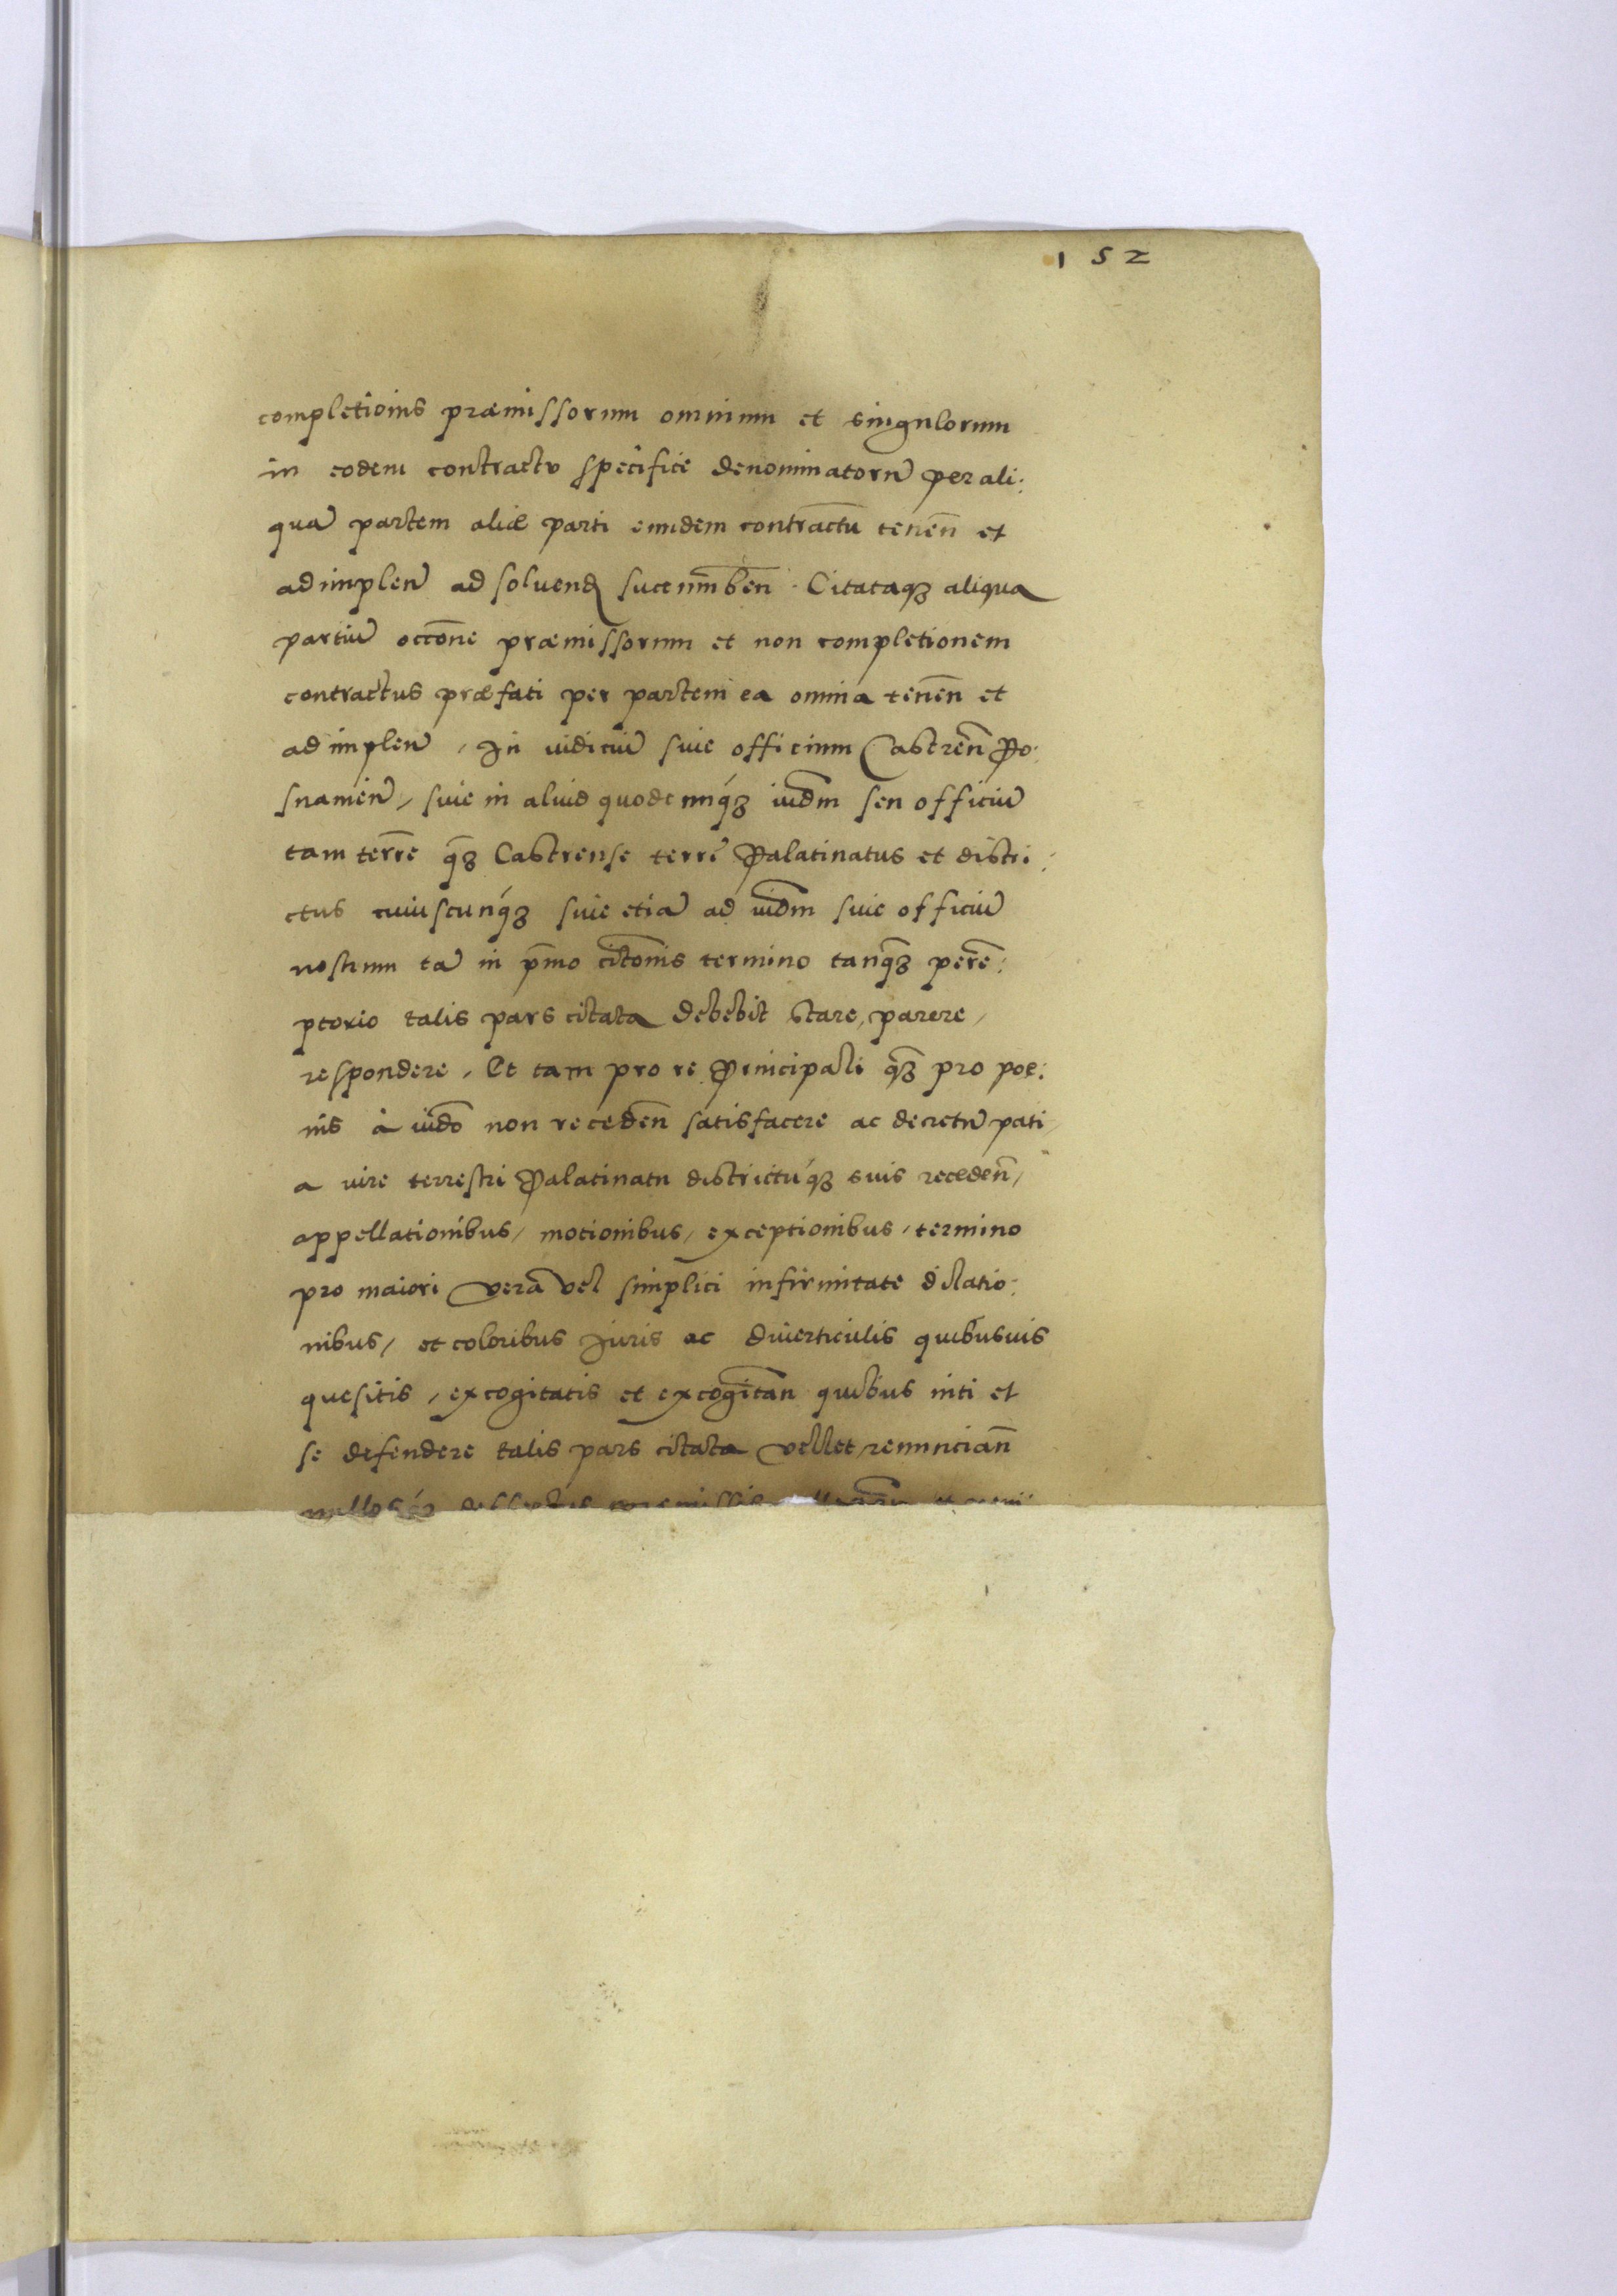 152
completionis præmissorum omnium et singulorum
in eodem contractu specifice denominatorũ per ali:
quã partem aliæ parti eiusdem contractũ tenen̄ et
ad implen̄ ad soluend̄ succumben̄. Citataqꝫ aliqua
partiũ occōne præmissorum et non completionem
contractus præfati per partem ea omnia tenen̄ et
ad implen̄, In iudiciũ siue officium Castren̄ Po:
snanien̄, siue in aliud quodcunqꝫ iudm̄ seu officiũ
tam terrē qꝫ̄ Castrense terrĕ Palatinatus et distri:
ctus cuiuscunqꝫ siue etiã ad iudm̄ siue officiũ
nostrum tã in pr̄mo citōnis termino tanqꝫ̄ perē:
ptorio talis pars citata debebit stare, parere,
respondere, Et tam pro re Principali qꝫ̄ pro poe:
nis à iudō non receden̄ satisfacere ac decretũ pati,
a iure terrestri Palatinatu districtuqꝫ suis receden̄,
appellationibus, motionibus, exceptionibus, termino
pro maiori vera vel simplici infirmitate dilatio:
nibus, et coloribus Juris ac diuerticulis quibusuis
quesitis, excogitatis et excogitan̄ quibus niti et
se defendere talis pars citata vellet renuncian̄